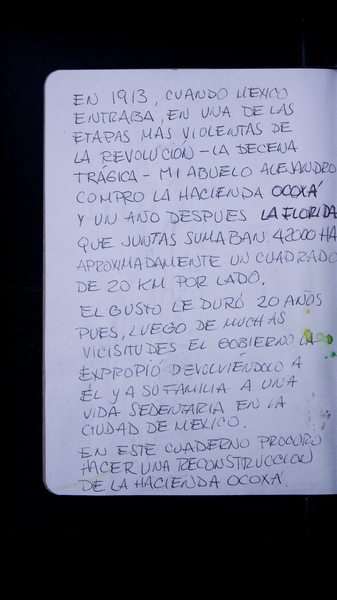 EN 1913, CUANDO MEXICO
ENTRABA, EN UNA DE LAS
ETAPAS MAS VIOLENTAS DE
LA REVOLUCIÓN - LA DECENA
TRÁGICA - MI ABUELO ALEJANDRO
COMPRO LA HACIENDA OCOXÁ
Y UN AÑO DESPUES LA FLORIDA
QUE JUNTAS SUMABAN 42000 HA
APROXIMADAMENTE UN CUADRADO
DE 20 KM POR LADO.
EL GUSTO LE DURÓ 20 AÑOS
PUES, LUEGO DE MUCHAS
VICISITUDES EL GOBIERNO LA
EXPROPIÓ DEVOLVIÉNDOLO A
ÉL Y A SU FAMILIA A UNA
VIDA SEDENTARIA EN LA
CIUDAD DE MEXICO.
EN ESTE CUADERNO PROCURO
HACER UNA RECONSTRUCCION
DE LA HACIENDA OCOXÁ.